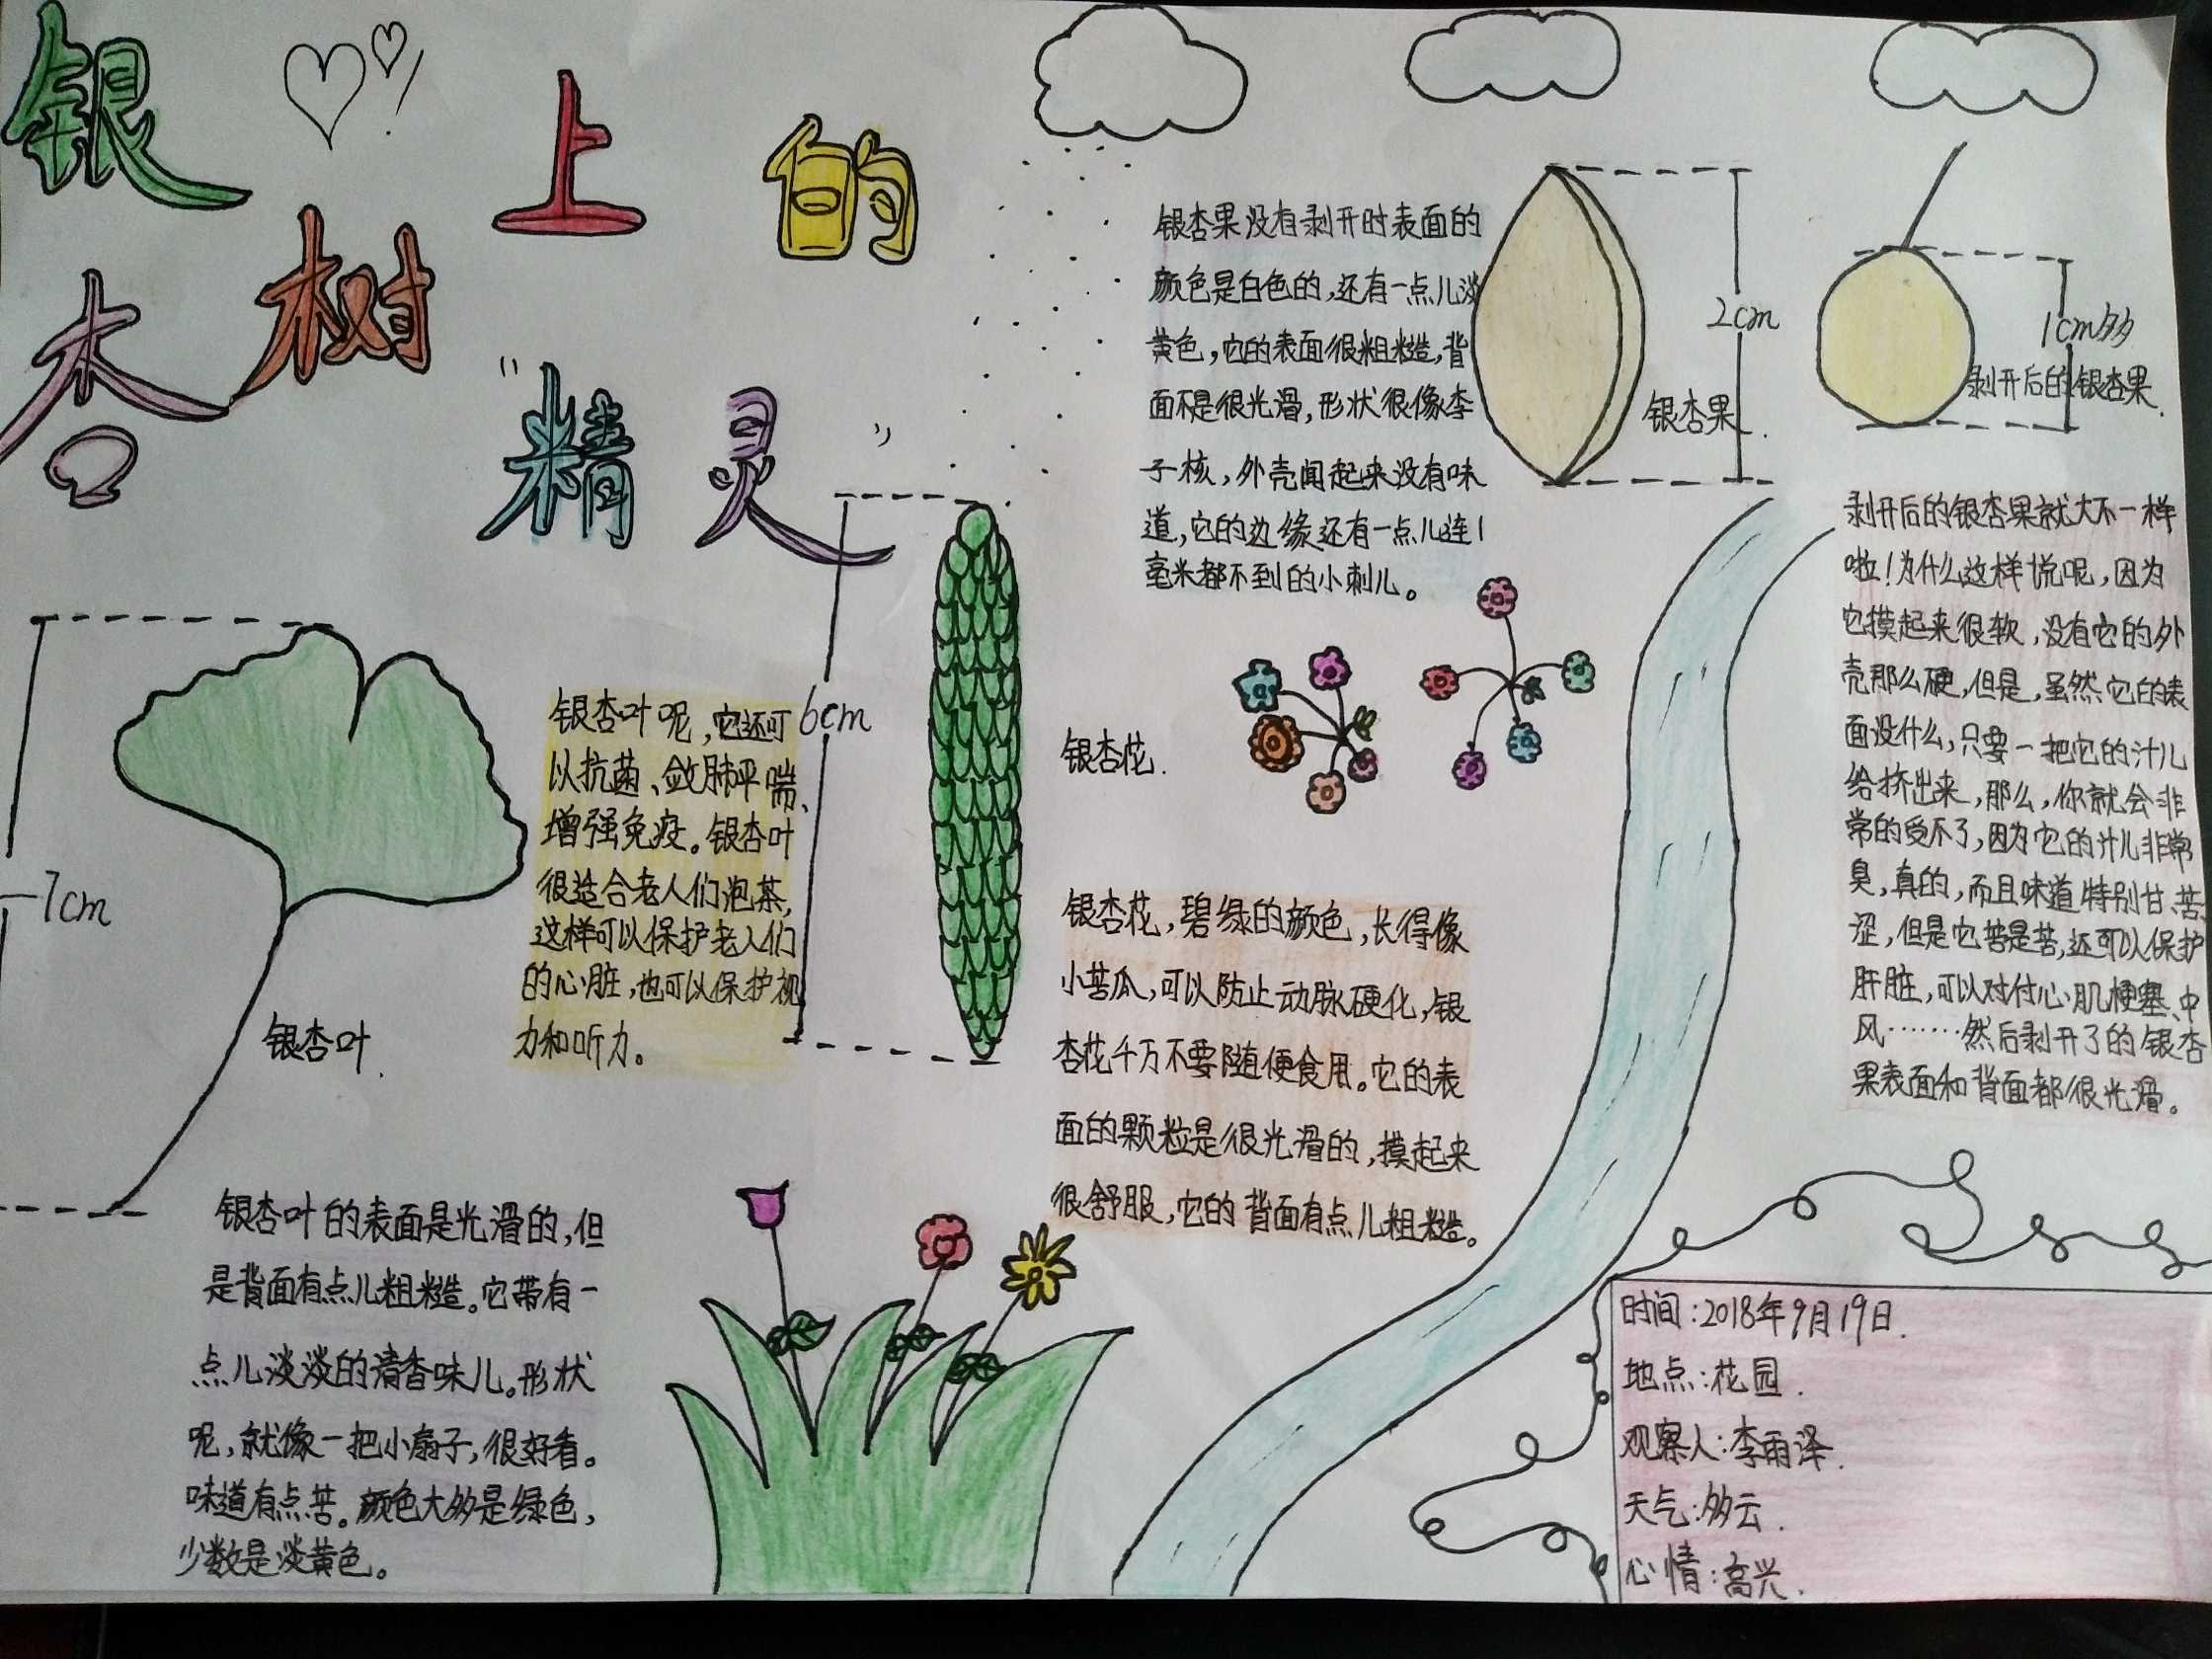 银杏树上的
"精灵"
银杏果没有剥开时表面的
颜色是白色的,还有一点儿淡
黄色,它的表面很粗糙,背
面不是很光滑,形状很像李
子核,外壳闻起来没有味
道,它的边缘还有一点儿连1
毫米都不到的小刺儿。
2cm
银杏果.
1cm多
剥开后的银杏果.
剥开后的银杏果就大不一样
啦!为什么这样说呢,因为
它摸起来很软,没有它的外
壳那么硬,但是,虽然它的表
面没什么,只要一把它的汁儿
给挤出来,那么,你就会非
常的受不了,因为它的汁儿非常
臭,真的,而且味道特别甘、苦、
涩,但是它苦是苦,还可以保护
肝脏,可以对付心肌梗塞、中
风……然后剥开了的银杏
果表面和背面都很光滑。
7cm
银杏叶.
银杏叶呢,它还可
以抗菌、敛肺平喘、
增强免疫。银杏叶
很适合老人们泡茶,
这样可以保护老人们
的心脏,也可以保护视
力和听力。
银杏叶的表面是光滑的,但
是背面有点儿粗糙。它带有一
点儿淡淡的清香味儿。形状
呢,就像一把小扇子,很好看。
味道有点苦。颜色大多是绿色,
少数是淡黄色。
6cm
银杏花.
银杏花,碧绿的颜色,长得像
小苦瓜,可以防止动脉硬化,银
杏花千万不要随便食用。它的表
面的颗粒是很光滑的,摸起来
很舒服,它的背面有点儿粗糙。
时间:2018年9月19日.
地点:花园.
观察人:李雨泽.
天气:多云.
心情:高兴.